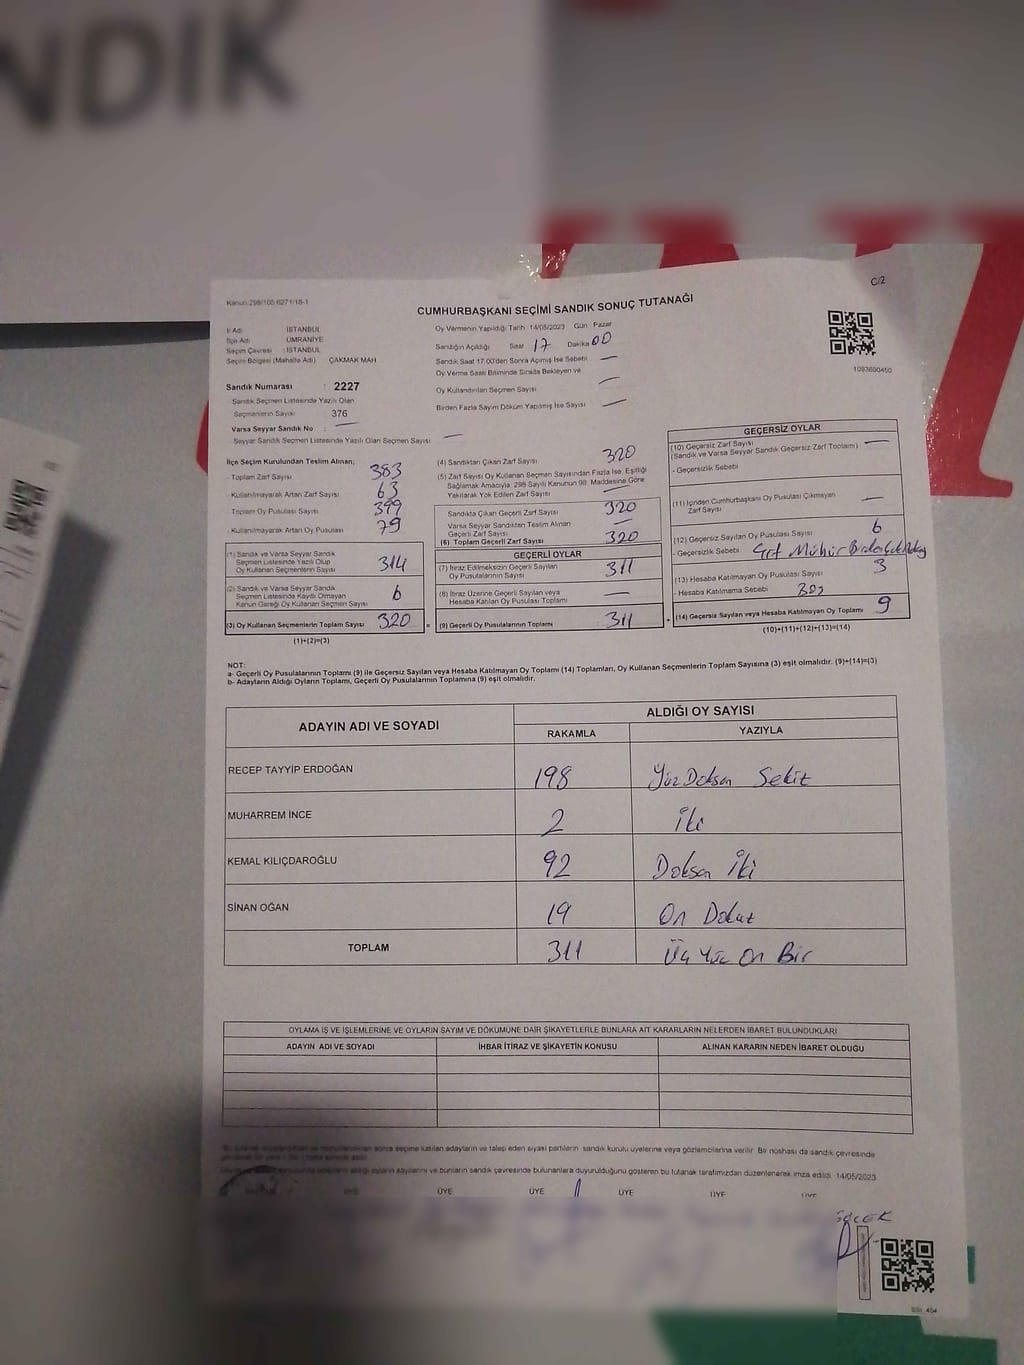 NDIK
C/2
Kanun:298/105;6271/18-1
CUMHURBAŞKANI SEÇİMİ SANDIK SONUÇ TUTANAĞI
İl Adı : İSTANBUL
İlçe Adı : ÜMRANİYE
Seçim Çevresi : İSTANBUL
Seçim Bölgesi (Mahalle Adı) ÇAKMAK MAH
Oy Vermenin Yapıldığı Tarih 14/05/2023 Gün Pazar
Sandığın Açıldığı Saat 17 Dakika 00
Sandık Saat 17.00'den Sonra Açılmış İse Sebebi —
Oy Verme Saati Bitiminde Sırada Bekleyen ve
Oy Kullandırılan Seçmen Sayısı —
Birden Fazla Sayım Döküm Yapılmış İse Sayısı —
1093600450
Sandık Numarası : 2227
Sandık Seçmen Listesinde Yazılı Olan
Seçmenlerin Sayısı 376
Varsa Seyyar Sandık No : —
Seyyar Sandık Seçmen Listesinde Yazılı Olan Seçmen Sayısı : —
İlçe Seçim Kurulundan Teslim Alınan;
- Toplam Zarf Sayısı 383
- Kullanılmayarak Artan Zarf Sayısı 63
- Toplam Oy Pusulası Sayısı 399
- Kullanılmayarak Artan Oy Pusulası 79
(1) Sandık ve Varsa Seyyar Sandık
Seçmen Listesinde Yazılı Olup
Oy Kullanan Seçmenlerin Sayısı 314
(2) Sandık ve Varsa Seyyar Sandık
Seçmen Listesinde Kayıtlı Olmayan
Kanun Gereği Oy Kullanan Seçmen Sayısı 6
(3) Oy Kullanan Seçmenlerin Toplam Sayısı 320
(1)+(2)=(3)
(4) Sandıktan Çıkan Zarf Sayısı 320
(5) Zarf Sayısı Oy Kullanan Seçmen Sayısından Fazla İse, Eşitliği
Sağlamak Amacıyla, 298 Sayılı Kanunun 98. Maddesine Göre
Yakılarak Yok Edilen Zarf Sayısı —
Sandıkta Çıkan Geçerli Zarf Sayısı 320
Varsa Seyyar Sandıktan Teslim Alınan
Geçerli Zarf Sayısı —
(6) Toplam Geçerli Zarf Sayısı 320
GEÇERLİ OYLAR
(7) İtiraz Edilmeksizin Geçerli Sayılan
Oy Pusulalarının Sayısı 311
(8) İtiraz Üzerine Geçerli Sayılan veya
Hesaba Katılan Oy Pusulası Toplamı —
(9) Geçerli Oy Pusulalarının Toplamı 311
GEÇERSİZ OYLAR
(10) Geçersiz Zarf Sayısı —
(Sandık ve Varsa Seyyar Sandık Geçersiz Zarf Toplamı)
- Geçersizlik Sebebi
(11) İçinden Cumhurbaşkanı Oy Pusulası Çıkmayan —
Zarf Sayısı
(12) Geçersiz Sayılan Oy Pusulası Sayısı 6
- Geçersizlik Sebebi Mühür
(13) Hesaba Katılmayan Oy Pusulası Sayısı 3
- Hesaba Katılmama Sebebi
(14) Geçersiz Sayılan veya Hesaba Katılmayan Oy Toplamı 9
(10)+(11)+(12)+(13)=(14)
NOT:
a- Geçerli Oy Pusulalarının Toplamı (9) ile Geçersiz Sayılan veya Hesaba Katılmayan Oy Toplamı (14) Toplamları, Oy Kullanan Seçmenlerin Toplam Sayısına (3) eşit olmalıdır. (9)+(14)=(3)
b- Adayların Aldığı Oyların Toplamı, Geçerli Oy Pusulalarının Toplamına (9) eşit olmalıdır.
ADAYIN ADI VE SOYADI ALDIĞI OY SAYISI
RAKAMLA YAZIYLA
RECEP TAYYİP ERDOĞAN 198 Yüz Doksan Sekiz
MUHARREM İNCE 2 İki
KEMAL KILIÇDAROĞLU 92 Doksan İki
SİNAN OĞAN 19 On Dokuz
TOPLAM 311 Üç Yüz On Bir
OYLAMA İŞ VE İŞLEMLERİNE VE OYLARIN SAYIM VE DÖKÜMÜNE DAİR ŞİKAYETLERLE BUNLARA AİT KARARLARIN NELERDEN İBARET BULUNDUKLARI
ADAYIN ADI VE SOYADI İHBAR İTİRAZ VE ŞİKAYETİN KONUSU ALINAN KARARIN NEDEN İBARET OLDUĞU
sonra seçime katılan adayların ve talep eden siyasi partilerin sandık kurulu üyelerine veya gözlemcilerine verilir. Bir nüshası da sandık çevresinde
aldığı oyların sayılarını ve bunların sandık çevresinde bulunanlara duyurulduğunu gösteren bu tutanak tarafımızdan düzenlenerek imza edildi. 14/05/2023
ÜYE ÜYE ÜYE ÜYE ÜYE